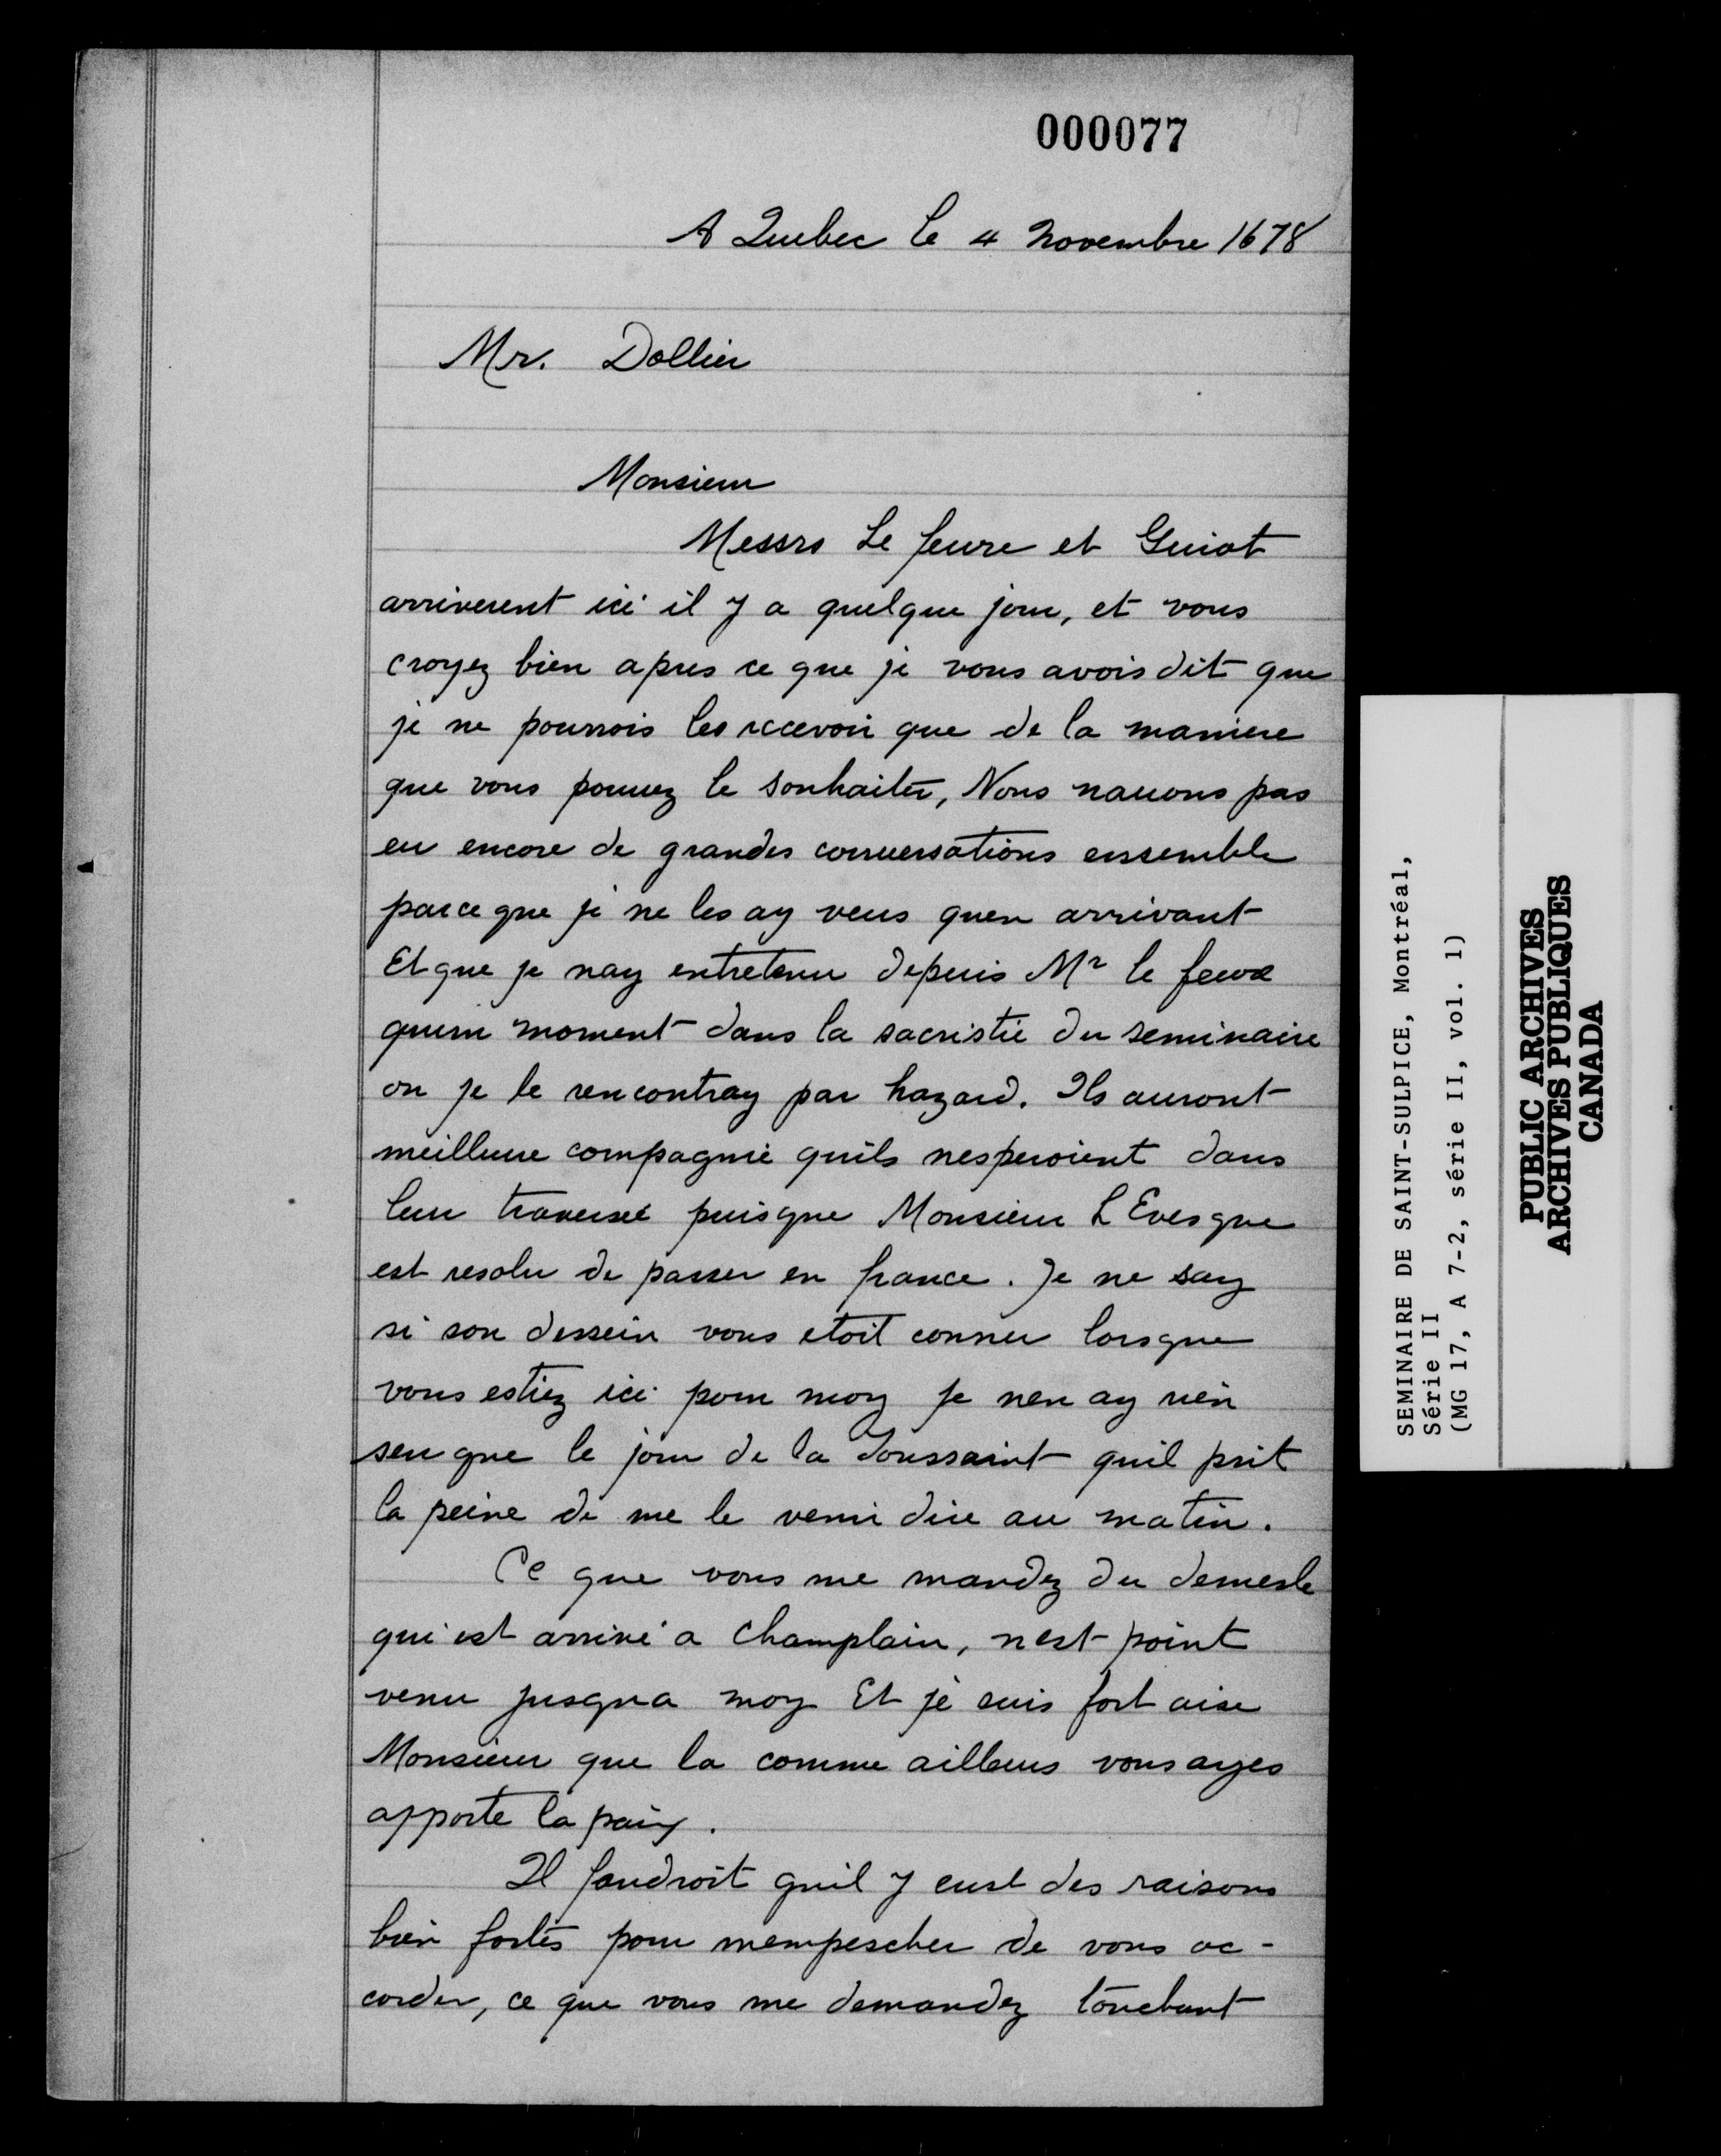 000077
A Quebec le 4 Novembre 1678
Mr. Dollier
Monsieur
Messrs Le feure et Guiot
arriverent ici il y a quelque jour, et vous
croyez bien apres ce que je vous avois dit que
je ne pourrois les recevoir que de la maniere
que vous pouuez le souhaiter, Nous nauons pas
eu encore de grandes conuersations ensemble
parce que je ne les ay veus quen arrivant
Et que je nay entretenu depuis Mr le feure
quun moment dans la sacristie du seminaire
ou je le rencontray par hazard. Ils auront
meilleure compagnie quils nesperoient dans
leur traversée puisque Monsieur L Evesque
est resolu de passer en france. Je ne say
si son dessein vous etoit connu lorsque
vous estiez ici pour moy je nen ay rien
seu que le jour de la Toussaint quil prit
la peine de me le venir dire au matin.
Ce que vous me mandez du demesle
qui est arrivé a Champlain, nest point
venu jusqua moy Et je suis fort aise
Monsieur que la comme ailleurs vous ayes
apporte la paix.
Il faudroit quil y eust des raisons
bien fortes pour mempescher de vous ac-
corder, ce que vous me demandez touchant
SEMINAIRE DE SAINT-SULPICE, Montréal,
Série II
(MG 17, A 7-2, série II, vol. 1)
PUBLIC ARCHIVES
ARCHIVES PUBLIQUES
CANADA